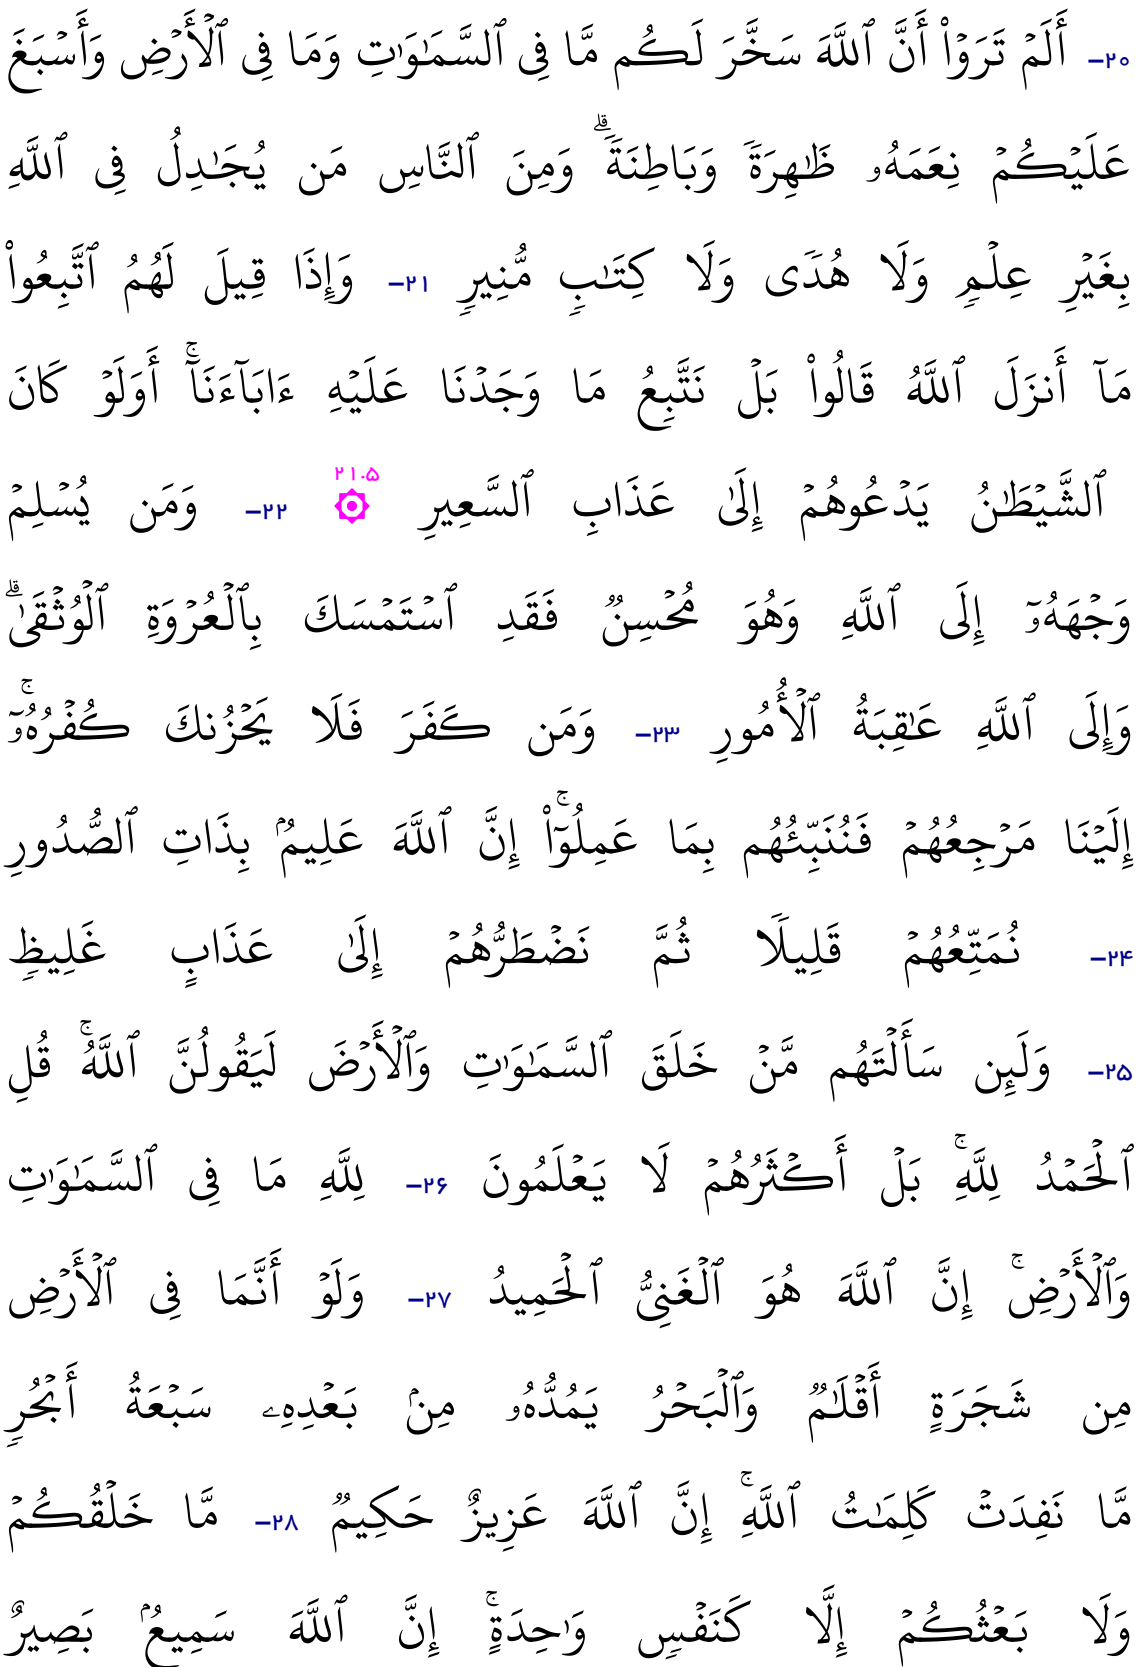 ۲۰- أَلَمۡ تَرَوۡاْ أَنَّ ٱللَّهَ سَخَّرَ لَكُم مَّا فِي ٱلسَّمَٰوَٰتِ وَمَا فِي ٱلۡأَرۡضِ وَأَسۡبَغَ
عَلَيۡكُمۡ نِعَمَهُۥ ظَٰهِرَةٗ وَبَاطِنَةٗۗ وَمِنَ ٱلنَّاسِ مَن يُجَٰدِلُ فِي ٱللَّهِ
بِغَيۡرِ عِلۡمٖ وَلَا هُدٗى وَلَا كِتَٰبٖ مُّنِيرٖ ۲۱- وَإِذَا قِيلَ لَهُمُ ٱتَّبِعُواْ
مَآ أَنزَلَ ٱللَّهُ قَالُواْ بَلۡ نَتَّبِعُ مَا وَجَدۡنَا عَلَيۡهِ ءَابَآءَنَآۚ أَوَلَوۡ كَانَ
ٱلشَّيۡطَٰنُ يَدۡعُوهُمۡ إِلَىٰ عَذَابِ ٱلسَّعِيرِ ۞ ۲۱.۵ ۲۲- وَمَن يُسۡلِمۡ
وَجۡهَهُۥٓ إِلَى ٱللَّهِ وَهُوَ مُحۡسِنٞ فَقَدِ ٱسۡتَمۡسَكَ بِٱلۡعُرۡوَةِ ٱلۡوُثۡقَىٰۗ
وَإِلَى ٱللَّهِ عَٰقِبَةُ ٱلۡأُمُورِ ۲۳- وَمَن كَفَرَ فَلَا يَحۡزُنكَ كُفۡرُهُۥٓۚ
إِلَيۡنَا مَرۡجِعُهُمۡ فَنُنَبِّئُهُم بِمَا عَمِلُوٓاْۚ إِنَّ ٱللَّهَ عَلِيمُۢ بِذَاتِ ٱلصُّدُورِ
۲۴- نُمَتِّعُهُمۡ قَلِيلٗا ثُمَّ نَضۡطَرُّهُمۡ إِلَىٰ عَذَابٍ غَلِيظٖ
۲۵- وَلَئِن سَأَلۡتَهُم مَّنۡ خَلَقَ ٱلسَّمَٰوَٰتِ وَٱلۡأَرۡضَ لَيَقُولُنَّ ٱللَّهُۚ قُلِ
ٱلۡحَمۡدُ لِلَّهِۚ بَلۡ أَكۡثَرُهُمۡ لَا يَعۡلَمُونَ ۲۶- لِلَّهِ مَا فِي ٱلسَّمَٰوَٰتِ
وَٱلۡأَرۡضِۚ إِنَّ ٱللَّهَ هُوَ ٱلۡغَنِيُّ ٱلۡحَمِيدُ ۲۷- وَلَوۡ أَنَّمَا فِي ٱلۡأَرۡضِ
مِن شَجَرَةٍ أَقۡلَٰمٞ وَٱلۡبَحۡرُ يَمُدُّهُۥ مِنۢ بَعۡدِهِۦ سَبۡعَةُ أَبۡحُرٖ
مَّا نَفِدَتۡ كَلِمَٰتُ ٱللَّهِۚ إِنَّ ٱللَّهَ عَزِيزٌ حَكِيمٞ ۲۸- مَّا خَلۡقُكُمۡ
وَلَا بَعۡثُكُمۡ إِلَّا كَنَفۡسٖ وَٰحِدَةٍۚ إِنَّ ٱللَّهَ سَمِيعُۢ بَصِيرٌ